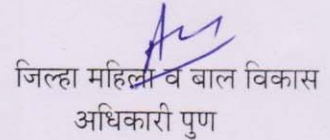 जिल्हा महिला व बाल विकास
अधिकारी पुण